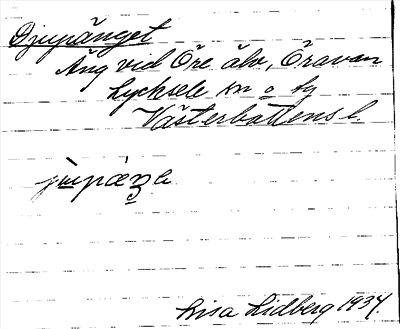 Djupänget
Äng vid Öre älv, Öravan
Lycksele sn o by
Västerbottens l.
Lisa Lidberg 1934.